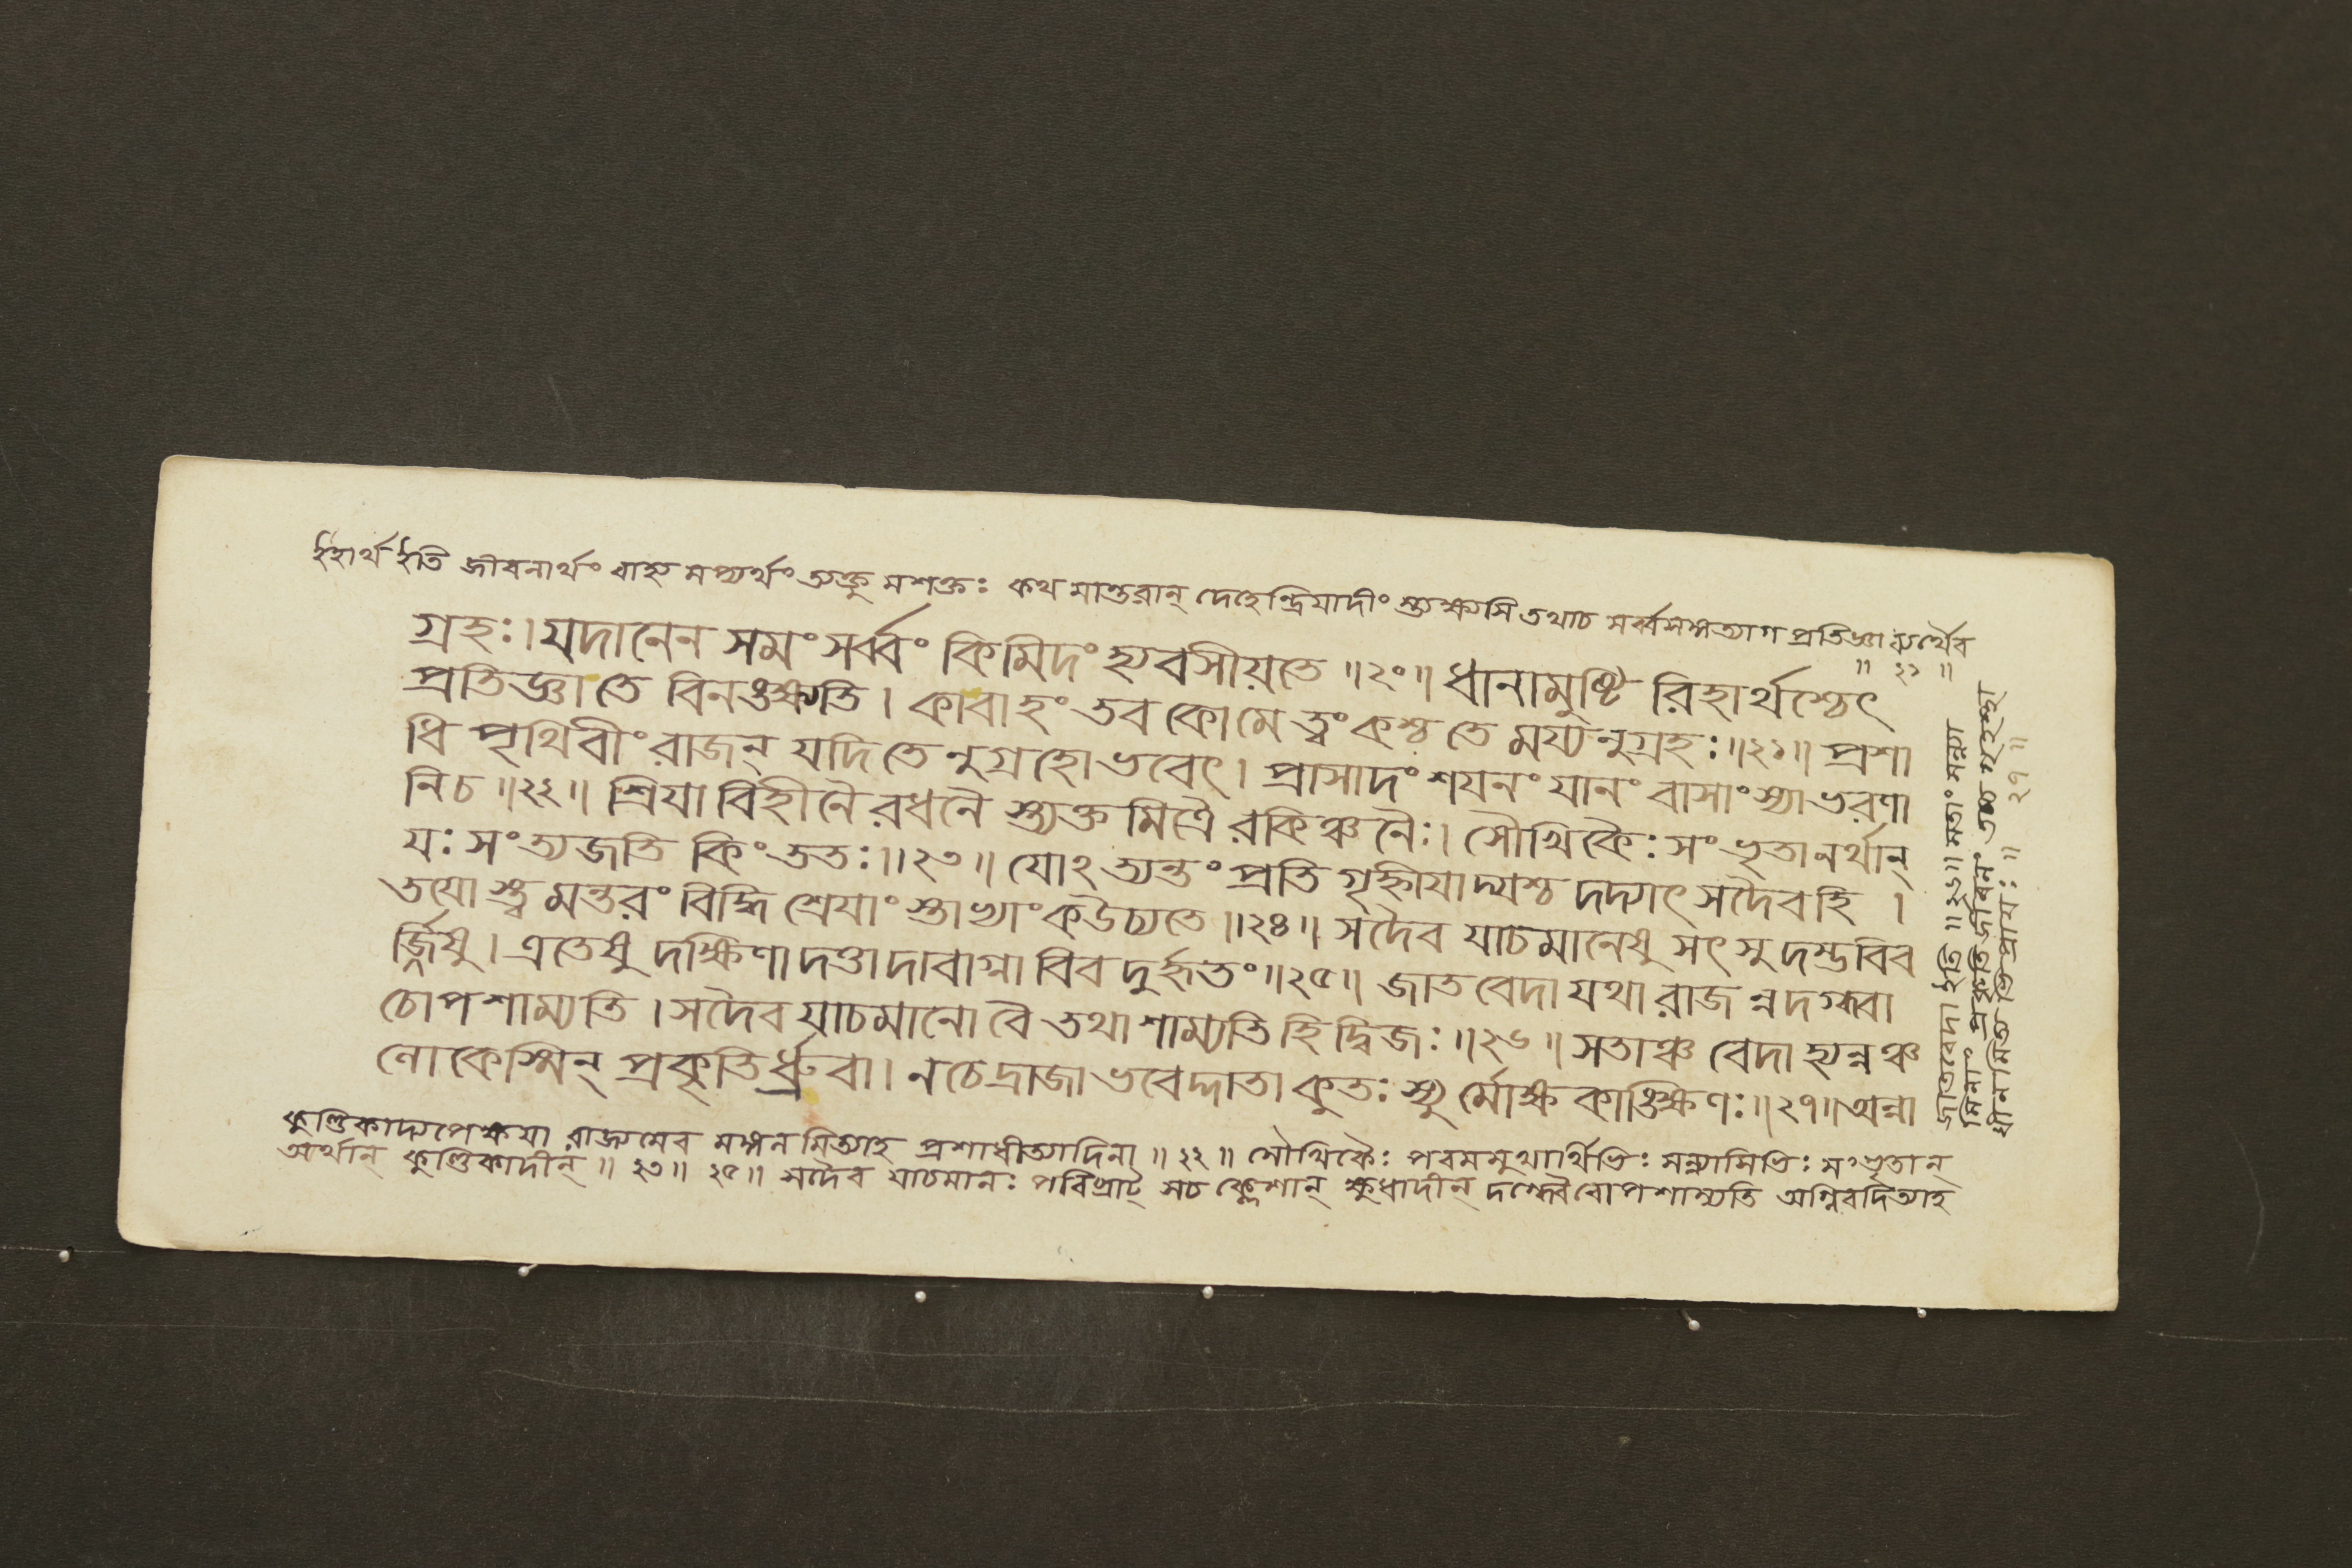 ইহার্থ ইতি জীবনার্থং বাহ্য মপ্যর্থং ত্যক্তু মশক্তঃ কথ মান্তরান্ দেহেন্দ্রিয়াদীং স্ত্যক্ষ্যসি তথাচ সর্ব্বসঙ্গত্যাগ প্রতিজ্ঞা ব্যর্থৈব
॥ ২১ ॥
গ্রহঃ। যদানেন সমং সর্ব্বং কিমিদং হ্যবসীয়তে ॥২০॥ ধানামুষ্টি রিহার্থশ্চেৎ
প্রতিজ্ঞা তে বিনঙ্ক্ষ্যতি। কাবাহং তব কোমে ত্বং কশ্চ তে ময্যনুগ্রহঃ॥২১॥ প্রশা
ধি পৃথিবীং রাজন্ যদিতে নুগ্রহো ভবেৎ। প্রাসাদং শযনং যানং বাসাংস্যাভরণা
নিচ ॥২২॥ শ্রিযা বিহীনৈ রধনৈ স্ত্যক্ত মিত্রৈ রকিঞ্চনৈঃ। সৌখিকৈঃ সংভৃতানর্থান্
যঃ সংত্যজতি কিংততঃ॥২৩॥ যোঽত্যন্তং প্রতি গৃহ্নীযাদ্যশ্চ দদ্যাৎ সদৈবহি ।
তযো স্ত্ব মন্তরং বিদ্ধি শ্রেযাং স্তাখ্যাং কউচ্যতে॥২৪॥ সদৈব যাচমানেষু সৎসু দম্ভবিব
র্জ্জিষু। এতেষু দক্ষিণা দত্তা দাবাগ্না বিব দুর্হৃতং॥২৫॥ জাতবেদা যথা রাজ ন্নদগ্ধ্বা
চোপশাম্যতি। সদৈব যাচমানো বৈ তথা শাম্যতি হি দ্বিজঃ॥২৬॥ সতাঞ্চ বেদা হ্যন্নঞ্চ
লোকেস্মিন্ প্রকৃতির্ধ্রুবা। নচেদ্রাজা ভবেদ্দাতা কুতঃ স্যু র্মোক্ষকাঙ্ক্ষিণঃ॥২৭॥ অন্না
কুণ্ডিকাদ্যপেক্ষযা রাজ্যমেব মহ্যন মিত্যাহ প্রশাধীত্যাদিনা ॥২২॥ সৌখিকৈঃ পরমসুখার্থিভিঃ সন্ন্যাসিভিঃ সংভৃতান্
অর্থান্ কুণ্ডিকাদীন্ ॥২৩॥ ২৫॥ সদৈব যাচমানঃ পরিব্রাট্ সচ ক্লেশান্ ক্ষুধাদীন্ দগ্ধ্বৈবোপশাম্যতি অগ্নিবদিত্যাহ
জাতবেদা ইতি ॥২৬॥ সতাং সন্ন্যা
সিনাং প্রকৃতি র্জীবনং
॥ ২৭ ॥